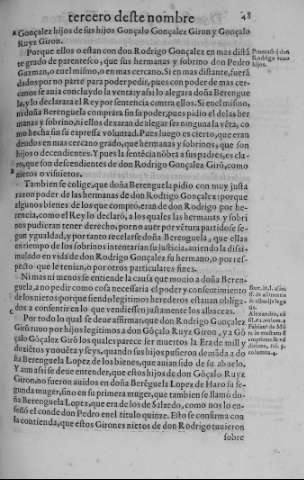 tercero deste nombre
48
Gonçalez hijos de sus hijos Gonçalo Gonçalez Giron y Gonçalo
Ruyz Giron.
Porque ellos o estan con don Rodrigo Gonçalez en mas distã
te grado de parentesco, que sus hermanas y sobrino don Pedro
Guzman, o en el mismo, o en mas cercano. Si en mas distante, fuera
dados por no parte para poder pedir, pues con poder de mas cer-
canos se auia concluydo la venta: y assi lo alegara doña Berengue
la, y lo declarara el Rey por sentencia contra ellos. Si en el mismo,
ni doña Berenguela comprara sin su poder, pues pidio el de las her
manas y sobrino, ni ellos dexaran de alegar ser ninguna la vẽta, co
mo hecha sin su expressa voluntad. Pues luego es cierto, que eran
deudos en mas cercano grado, que hermanas y sobrinos, que son
hijos o decendientes. Y pues la sentẽcia nõbra a sus padres, es cla-
ro, que son descendientes de don Rodrigo Gonçalez Girõ, como
nietos o visnietos.
Tambien se colige, que doña Berenguela pidio con muy justa
razon poder de las hermanas de don Rodrigo Gonçalez: porque
algunos bienes de los que comprò, eran de don Rodrigo por he-
rencia, como el Rey lo declarò, a los quales las hermanas y sobri
nos pudieran tener derecho, por no auer por vẽtura partidose se-
gun ygualdad, y por tanto recelarse doña Berenguela, que ellas
en tiempo de los sobrinos intentarian su justicia, auiendo la dissi-
mulado en vida de don Rodrigo Gonçalez su hermano, o por res-
pecto que le tenian, o por otros particulares fines.
Ni mas ni menos se entiende la causa que mouio a doña Beren-
guela, a no pedir como cosa necessaria el poder y consentimiento
de los nietos: porque siendo legitimos herederos estauan obliga-
dos a consentir en lo que vendiessen justamente los albaceas.
Por todo lo qual se deue afirmar, que don Rodrigo Gonçalez
Girõ tuuo por hijos legitimos a don Gõçalo Ruyz Giron, y a Gõ
çalo Gõçalez Girõ los quales parece ser muertos la Era de mill y
dozientos y nouẽta y seys, quando sus hijos pusieron demãda a do
ña Berenguela Lopez de los bienes, que auian sido de su abuelo.
Y aun assi se deue entender, que estos hijos de don Gõçalo Ruyz
Giron, no fueron auidos en doña Berẽguela Lopez de Haro su se-
gunda muger, sino en su primera muger, que tambien se llamò do-
ña Berenguela Lopez, que era de los de Salzedo, como nos lo en-
señò el conde don Pedro en el titulo quinze. Esto se confirma con
la contienda, que estos Girones nietos de don Rodrigo tuuieron
sobre